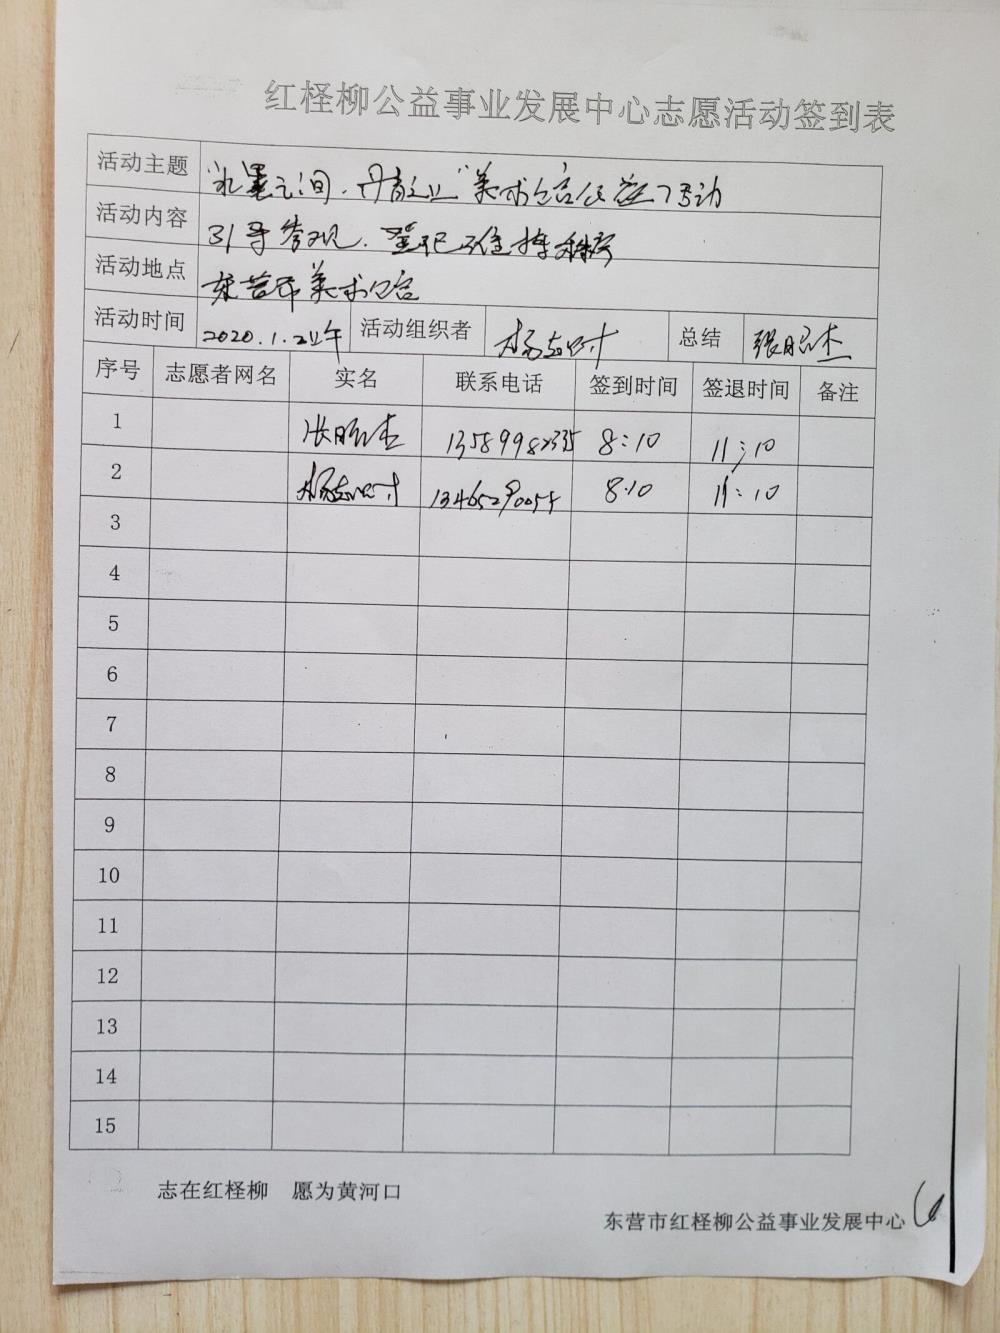 红柽柳公益事业发展中心志愿活动签到表
活动主题 "水墨之间·丹青之上"美术馆公益活动
活动内容 引导参观、登记、维持秩序
活动地点 东营市美术馆
活动时间 2020.1.2上午 活动组织者 杨 总结 张昭杰
序号 志愿者网名 实名 联系电话 签到时间 签退时间 备注
1 张昭杰 8:10 11:10
2 杨 8:10 11:10
3
4
5
6
7
8
9
10
11
12
13
14
15
志在红柽柳 愿为黄河口
东营市红柽柳公益事业发展中心